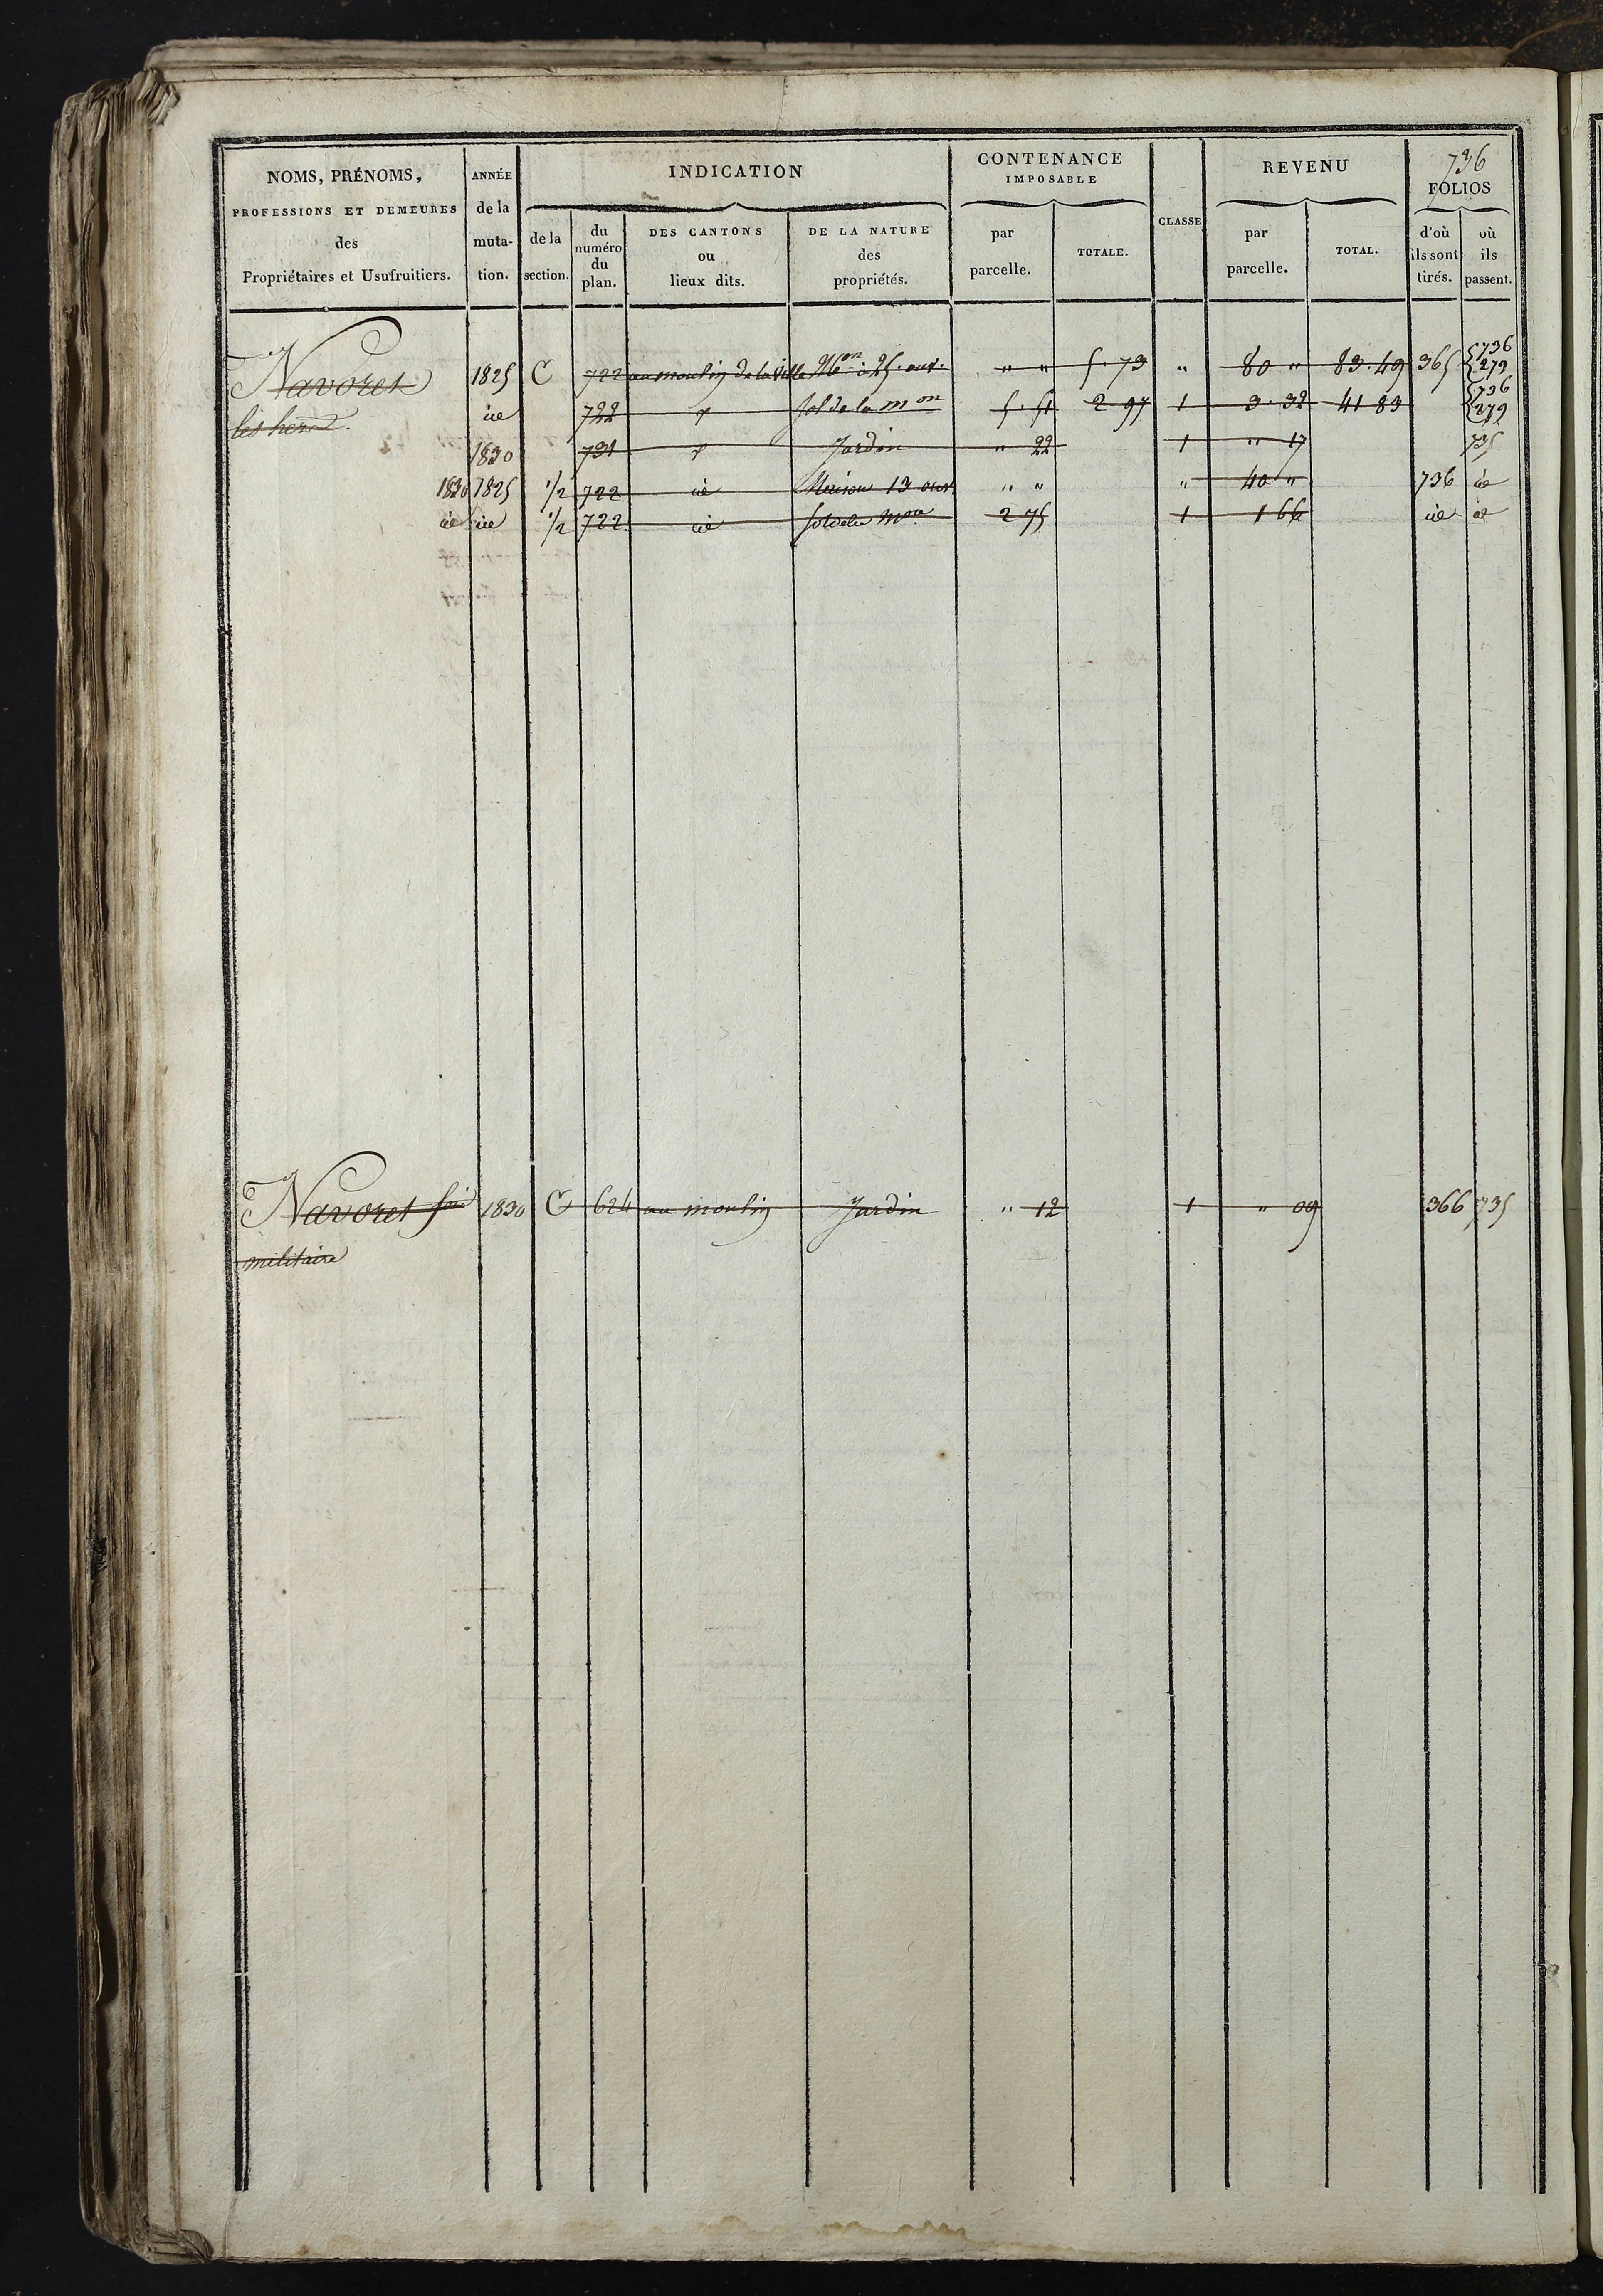 736
NOMS, PRÉNOMS, PROFESSIONS ET DEMEURES des Propriétaires et Usufruitiers.
ANNÉE de la muta- tion.
INDICATION
de la section.
du numéro du plan.
DES CANTONS ou lieux dits.
DE LA NATURE des propriétés.
CONTENANCE IMPOSABLE
par parcelle.
TOTALE.
CLASSE
REVENU
par parcelle.
TOTAL.
FOLIOS
d'où ils sont tirés.
où ils passent.
Navoret 1825 C 722 au moulin de la ville Mon à 25. ouv. " " 5. 73 " 80 " 83. 49 365 {736 279
les hers. ie 722 + sol de la mon 5. 51 2 97 1 3. 32 41 83 {736 279
1830 731 + Jardin " 22 1 " 17 735
1830 1825 1/2 722 ie Maison 13 ouv " " " 40 " 736 ie
ie ie 1/2 722 ie sol de la Mon 2 75 1 1 66 ie ie
Navoret 1830 C 624 au moulin Jardin " 12 1 " 09 366 735
militaire